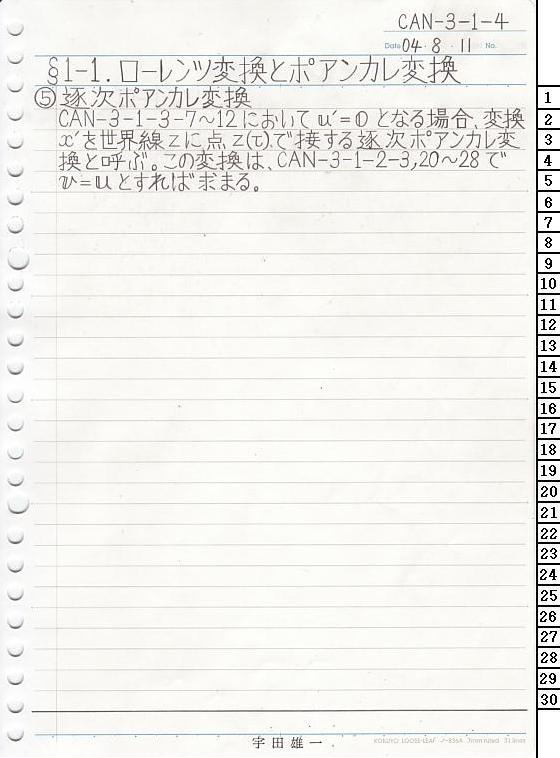 CAN-3-1-4
Date 04・8・11 No.
§1-1. ローレンツ変換とポアンカレ変換
⑤ 逐次ポアンカレ変換
CAN-3-1-3-7~12において𝕦'=𝟘となる場合、変換
x'を世界線zに点z(τ)で接する逐次ポアンカレ変
換と呼ぶ。この変換は、CAN-3-1-2-3,20~28で
𝕧=𝕦とすれば求まる。
宇田雄一
KOKUYO LOOSE-LEAF ノ-836A 7mm ruled 31 lines
1
2
3
4
5
6
7
8
9
10
11
12
13
14
15
16
17
18
19
20
21
22
23
24
25
26
27
28
29
30